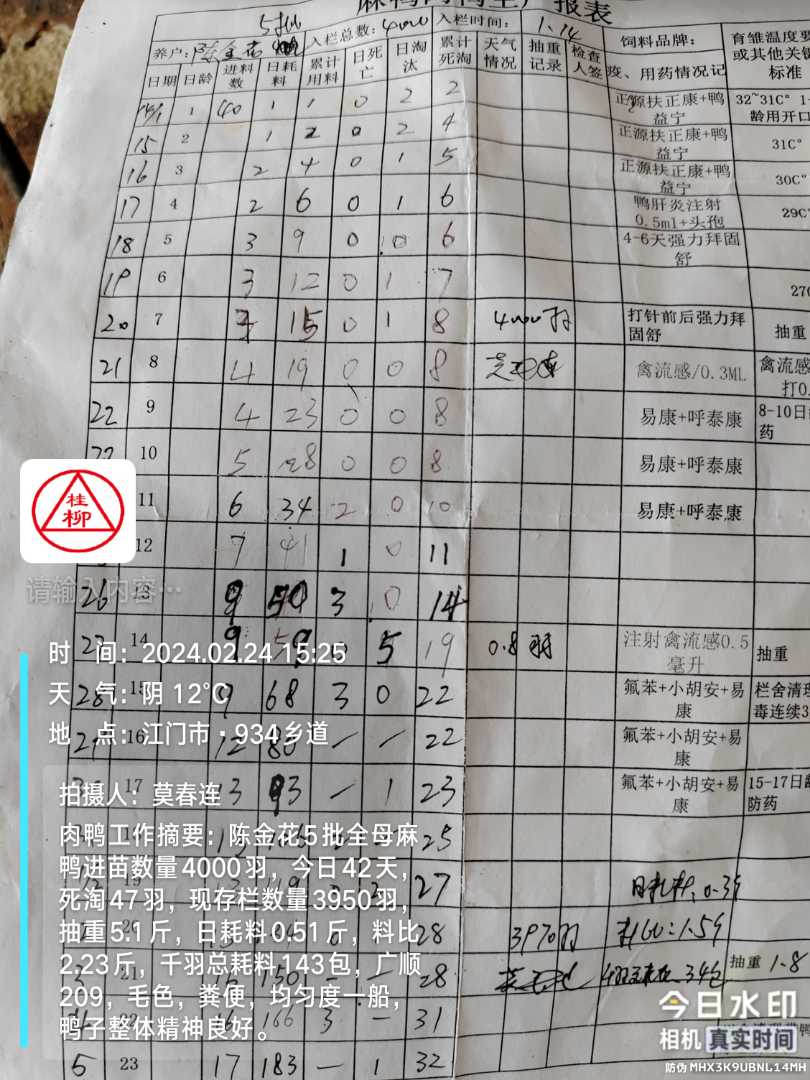 5批
麻鸭
报表
养户: 陈金花 入栏总数: 4000 入栏时间: 1.14 饲料品牌: 育雏温度要
日期 日龄 进料数 日耗料 累计用料 日死亡 日淘汰 累计死淘 天气情况 抽重记录 检查人签 疫、用药情况记 或其他关键
标准
14/1 1 40 1 1 0 2 2 正源扶正康+鸭益宁 32~31C° 1-
龄用开口
15 2 1 2 0 2 4 正源扶正康+鸭益宁 31C°
16 3 2 4 0 1 5 正源扶正康+鸭益宁 30C°
17 4 2 6 0 1 6 鸭肝炎注射0.5ml+头孢 29C°
18 5 3 9 0 0 6 4-6天强力拜固舒
19 6 3 12 0 1 7 270
20 7 3 15 0 1 8 4000羽 打针前后强力拜固舒 抽重
21 8 4 19 0 0 8 禽流感/0.3ML 禽流感
打0.
22 9 4 23 0 0 8 易康+呼泰康 8-10日
药
10 5 28 0 0 8 易康+呼泰康
11 6 34 2 0 10 易康+呼泰康
12 7 41 1 0 11
26 13 9 50 3 0 14
27 14 9 59 0 5 19 0.8 羽 注射禽流感0.5毫升 抽重
28 15 9 68 3 0 22 氟苯+小胡安+易康 栏舍清理
毒连续3
16 12 80 — — 22 氟苯+小胡安+易康
17 13 93 — 1 23 氟苯+小胡安+易康 15-17日龄
防药
25
19 27 日耗料: 0.39
20 28 3970羽 料比: 1.59
21 150 28 34包 抽重 1.8
16 166 3 — 31
5 23 17 183 — 1 32
桂柳
请输入内容…
时 间: 2024.02.24 15:25
天 气: 阴 12℃
地 点: 江门市·934乡道
拍摄人: 莫春连
肉鸭工作摘要: 陈金花5批全母麻
鸭进苗数量4000羽，今日42天，
死淘47羽，现存栏数量3950羽，
抽重5.1斤，日耗料0.51斤，料比
2.23斤，千羽总耗料143包，广顺
209，毛色，粪便，均匀度一般，
鸭子整体精神良好。
今日水印
相机 真实时间
防伪 MHX3K9UBNL14MH